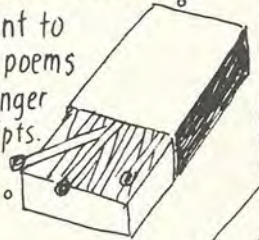 nt to
poems
nger
pts.